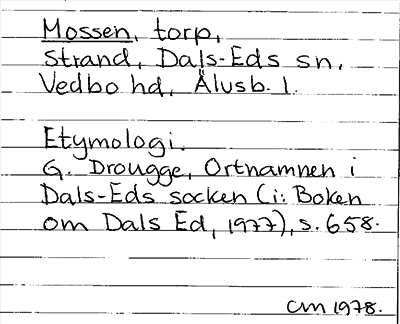 Mossen, torp,
Strand, Dals-Eds sn,
Vedbo hd, Älvsb. l.
Etymologi.
G. Drougge, Ortnamnen i
Dals-Eds socken (i: Boken
om Dals Ed, 1977), s. 658.
CM 1978.